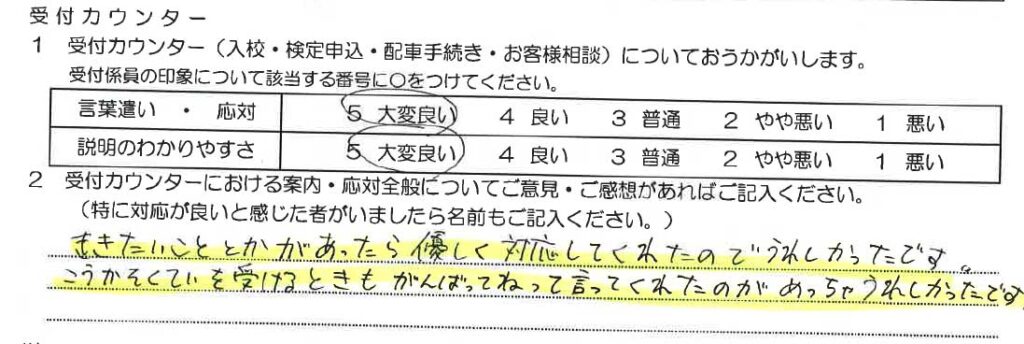 受付カウンター
1 受付カウンター（入校・検定申込・配車手続き・お客様相談）についておうかがいします。
受付係員の印象について該当する番号に○をつけてください。
言葉遣い ・ 応対 5 大変良い 4 良い 3 普通 2 やや悪い 1 悪い
説明のわかりやすさ 5 大変良い 4 良い 3 普通 2 やや悪い 1 悪い
2 受付カウンターにおける案内・応対全般についてご意見・ご感想があればご記入ください。
（特に対応が良いと感じた者がいましたら名前もご記入ください。）
ききたいこととかがあったら優しく対応してくれたのでうれしかったです。
こうかそくていを受けるときもがんばってねって言ってくれたのがめっちゃうれしかったです